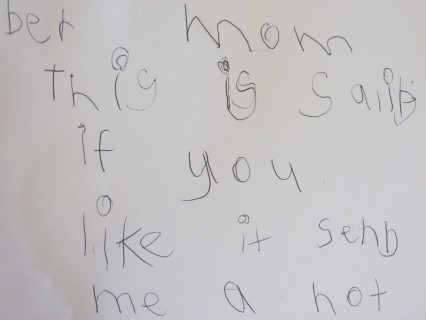 ber mom
this is Saiib
if you
like it senb
me a not